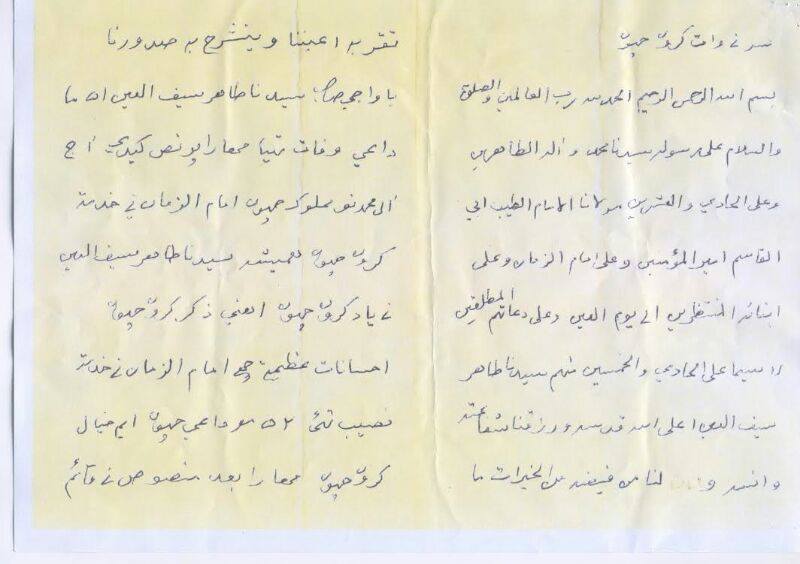 بسم الله الرحمن الرحيم الحمد لله رب العالمين والصلوة
والسلام على رسوله سيدنا محمد واله الطاهرين
وعلى الحادي والعشرين مولانا الامام الطيب ابي
القاسم امير المؤمنين وعلى امام الزمان وعلى
ابنائه المنتظرين الى يوم الدين وعلى دعاتهم المطلقين
لا سيما على الحادي والخمسين منهم سيدنا طاهر
سيف الدين اعلى الله قدسه ورزقنا شفاعته
وانسه لنا من فيضه من الخيرات ما
تقر به اعيننا وينشرح به صدورنا
باواجي صاحب سيدنا طاهر سيف الدين ٥١ ما
داعي وفات مهارا نص كيدي اج
ال محمد نو مملوك چهوں امام الزمان ني خدمة
كروں چهوں هميشه سيدنا طاهر سيف الدين
ني ياد كروں چهوں ذكر كروں چهوں
احسانات عظيمة امام الزمان ني خدمة
نصيب تهئي ٥٢ مو داعي چهوں ايم خيال
كروں چهوں مهارا بعد منصوص ني قائم